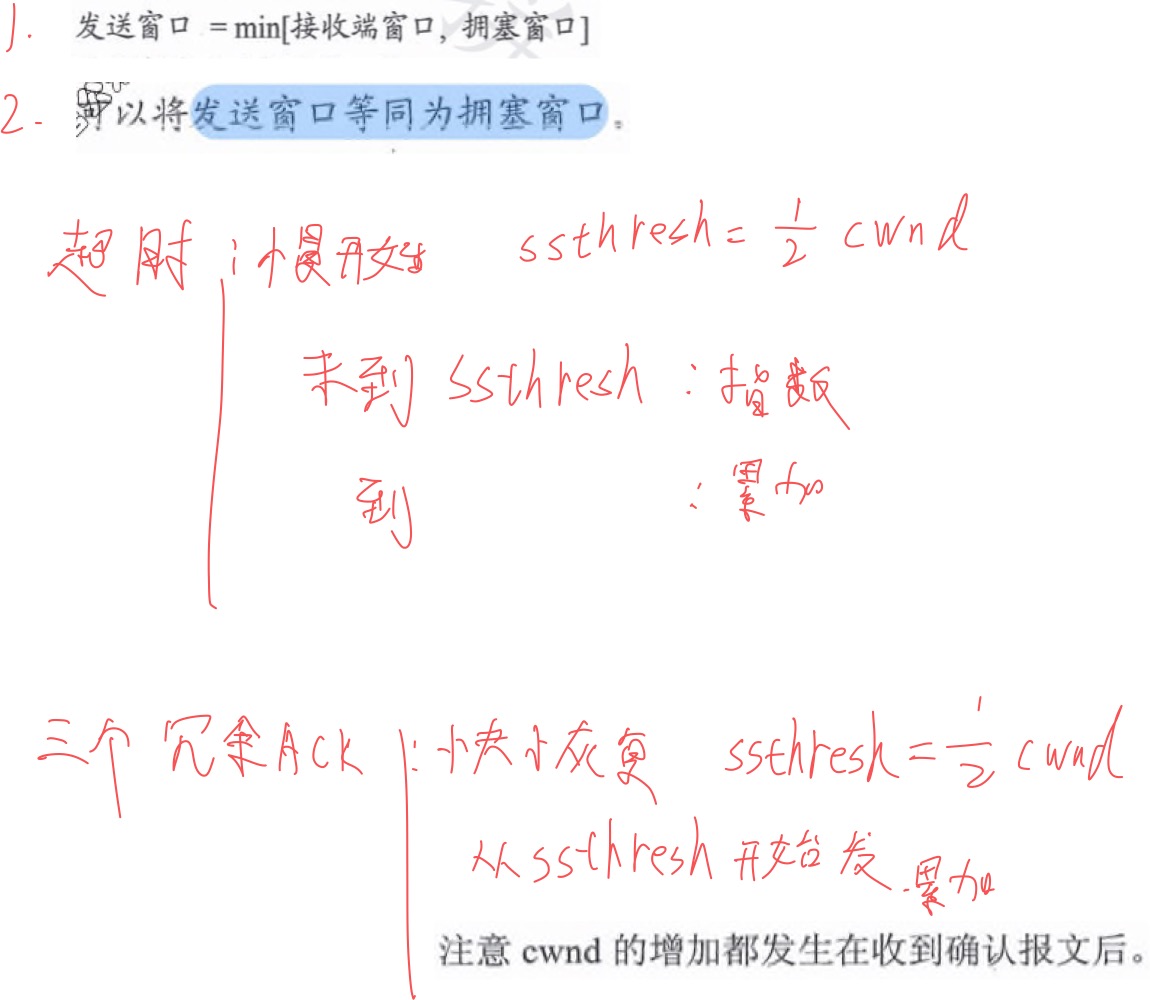 1. 发送窗口 = min[接收端窗口, 拥塞窗口]
2. 以将发送窗口等同为拥塞窗口。
超时:慢开始 ssthresh = 1/2 cwnd
未到 ssthresh:指数
到 :累加
三个冗余ACK:快恢复 ssthresh = 1/2 cwnd
从ssthresh开始发 累加
注意 cwnd 的增加都发生在收到确认报文后。